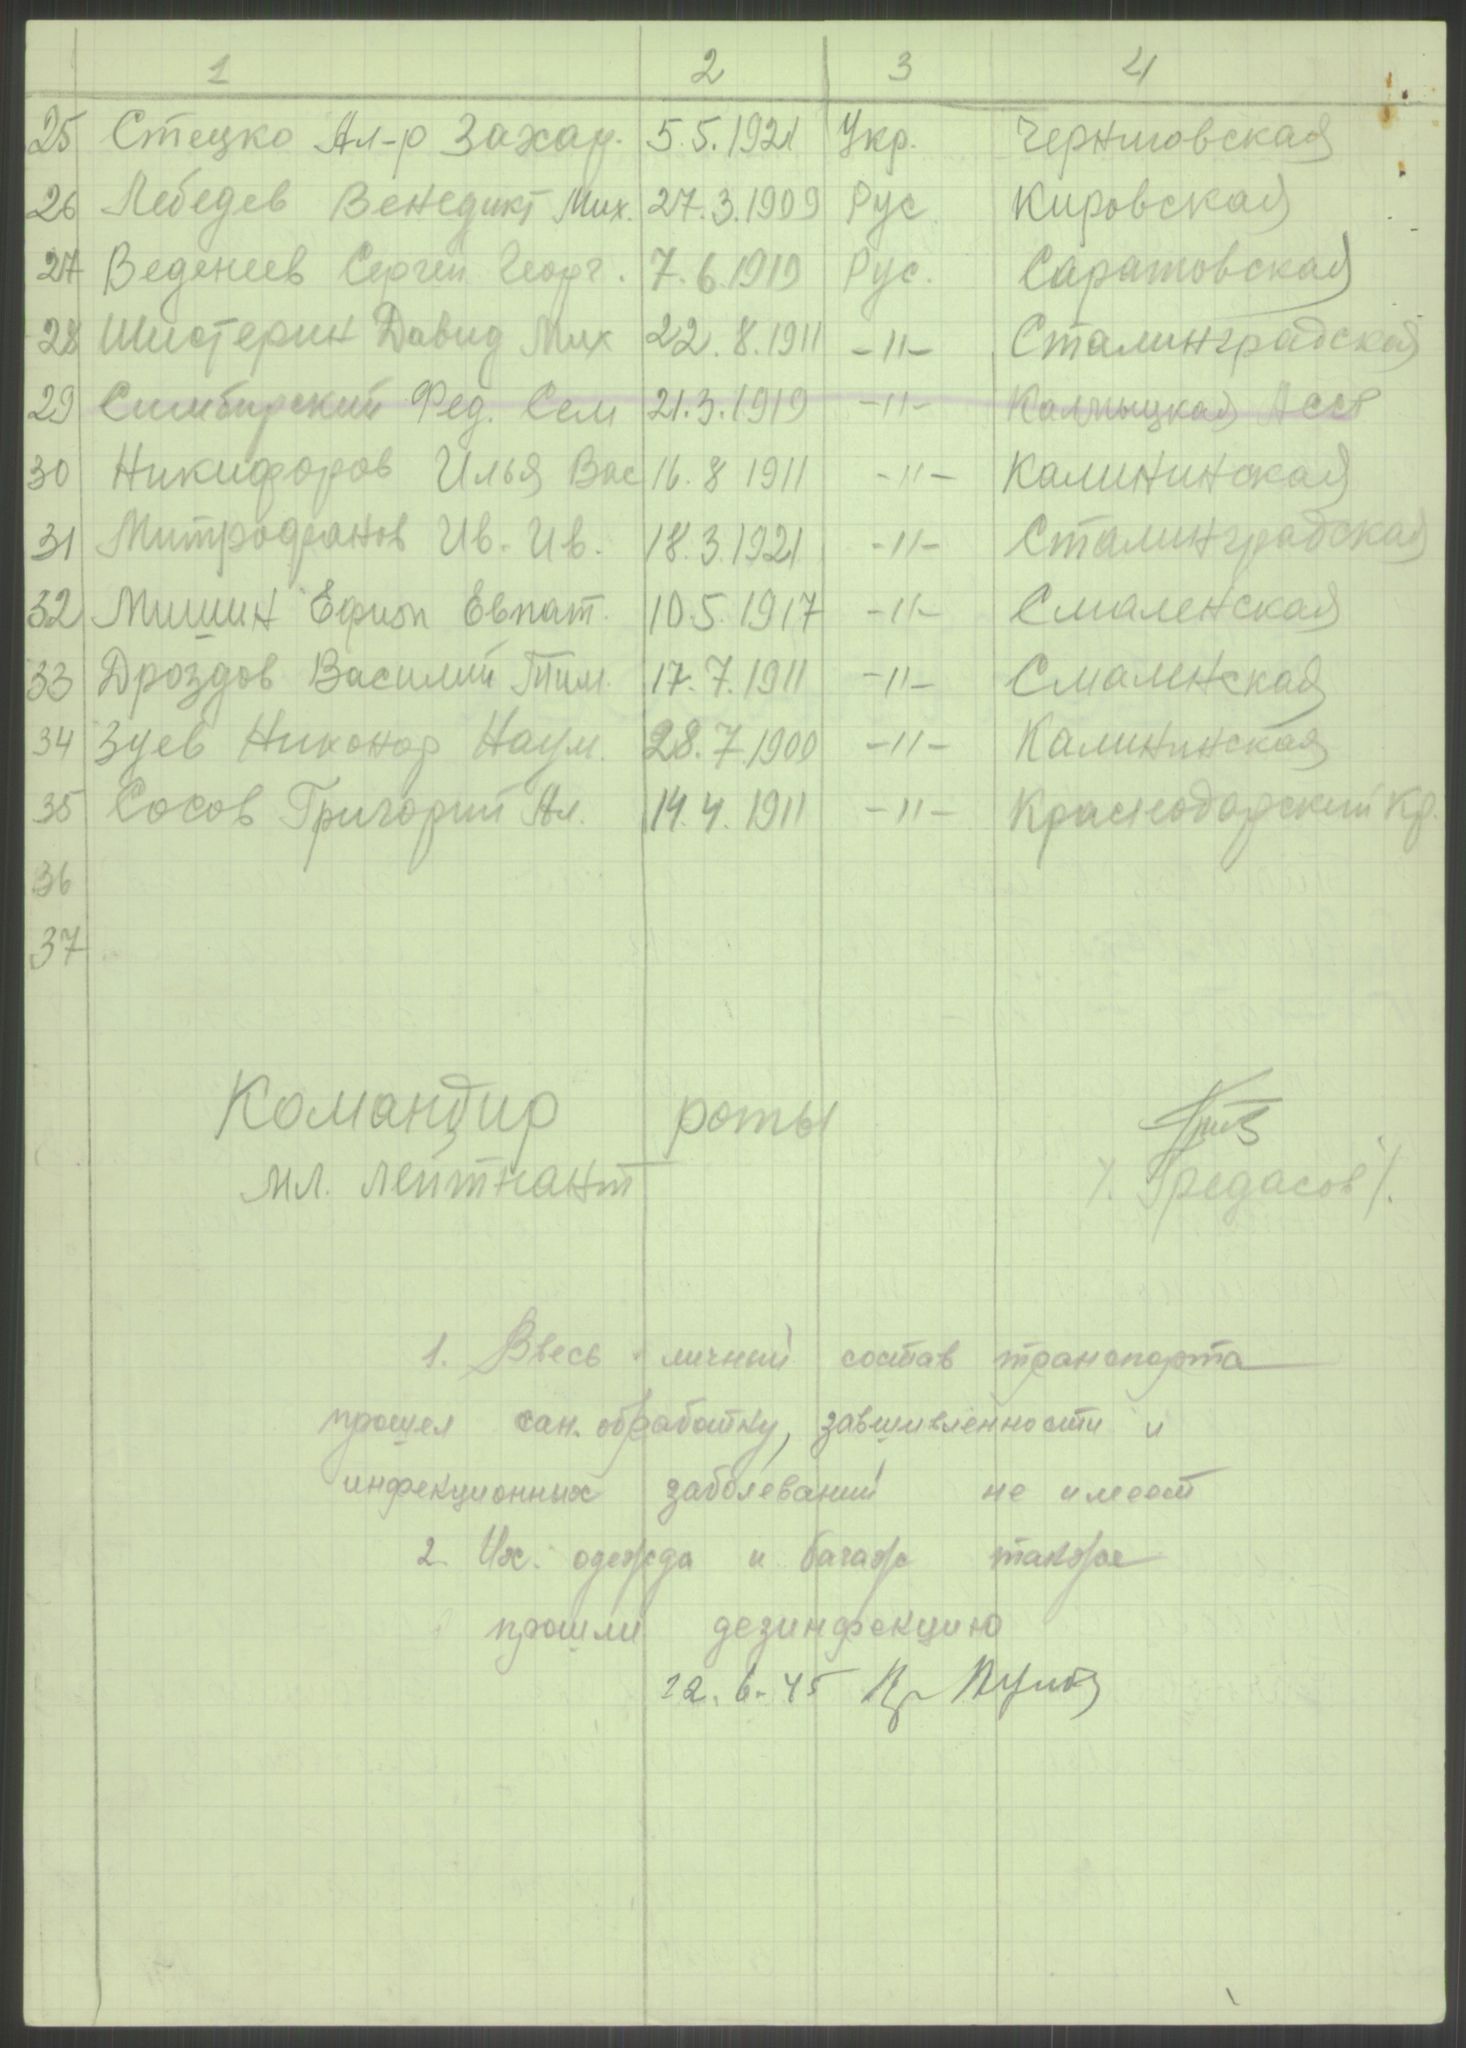 1 2 3 4
25 Стецко Ал-р Захар. 5.5.1921 Укр. Черниговская
26 Лебедев Венедикт Мих. 27.3.1909 Рус. Кировская
27 Веденеев Сергей Георг. 7.6.1919 Рус. Саратовская
28 Шистерин Давид Мих 22.8.1911 -11- Сталинградская
29 Симбирский Фед. Сем 21.3.1919 -11- Калмыцкая Асср
30 Никифоров Илья Вас 16.8 1911 -11- Калининская
31 Митрофанов Ив. Ив. 18.3.1921 -11- Сталинградская
32 Мишин Ефим Евпат. 10.5.1917 -11- Смаленская
33 Дроздов Василий Тим. 17.7.1911 -11- Смаленская
34 Зуев Никонор Наум. 28.7.1900 -11- Калининская
35 Сосов Григорий Ал. 14.4.1911 -11- Краснодарский Кр.
36
37
Командир роты
мл. лейтнант /. Гредасов /.
1. Ввесь личный состав транспорта
прошел сан. обработку, завшивленности и
инфекционных заболеваний не имеет
2. Их. одежда и багаж также
прошли дезинфекцию
22.6.45